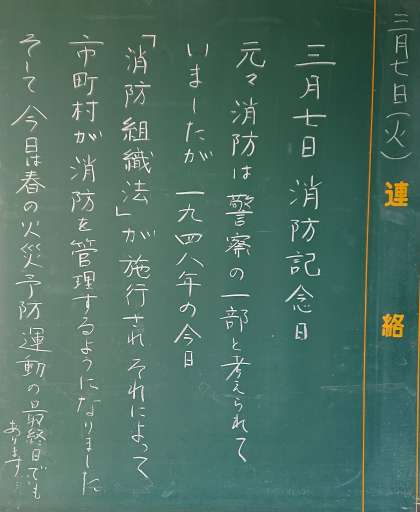 三月七日(火)
連絡
三月七日 消防記念日
元々消防は警察の一部と考えられて
いましたが 一九四八年の今日
「消防組織法」が施行されそれによって
市町村が消防を管理するようになりました
そして今日は春の火災予防運動の最終日でも
あります…